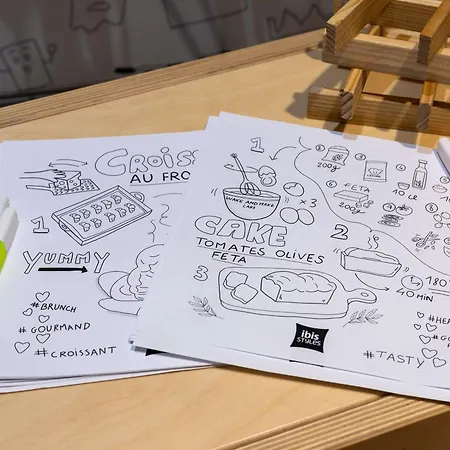 CROISS
AU FRO
1
YUMMY
#BRUNCH
#GOURMAND
#CROISSANT
1
WAKE AND MAKE
CAKE
× 3
CAKE
TOMATES OLIVES
FETA
2
3
200g
FETA
200g
10 CL
180°
40 MIN
ibis
STYLES
#TASTY
#HEA
#GO